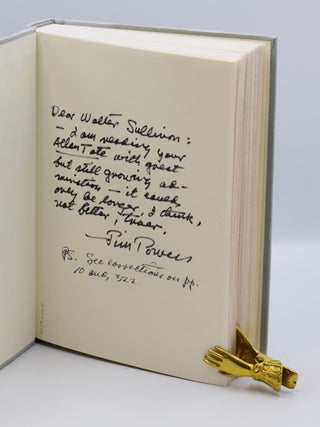 Dear Walter Sullivan:
— I am reading your
Allen Tate with great
but still growing ad-
miration — it could
only be longer, I think,
not better, truer.
Jim Powers
PS. See corrections on pp.
10 and, 322.